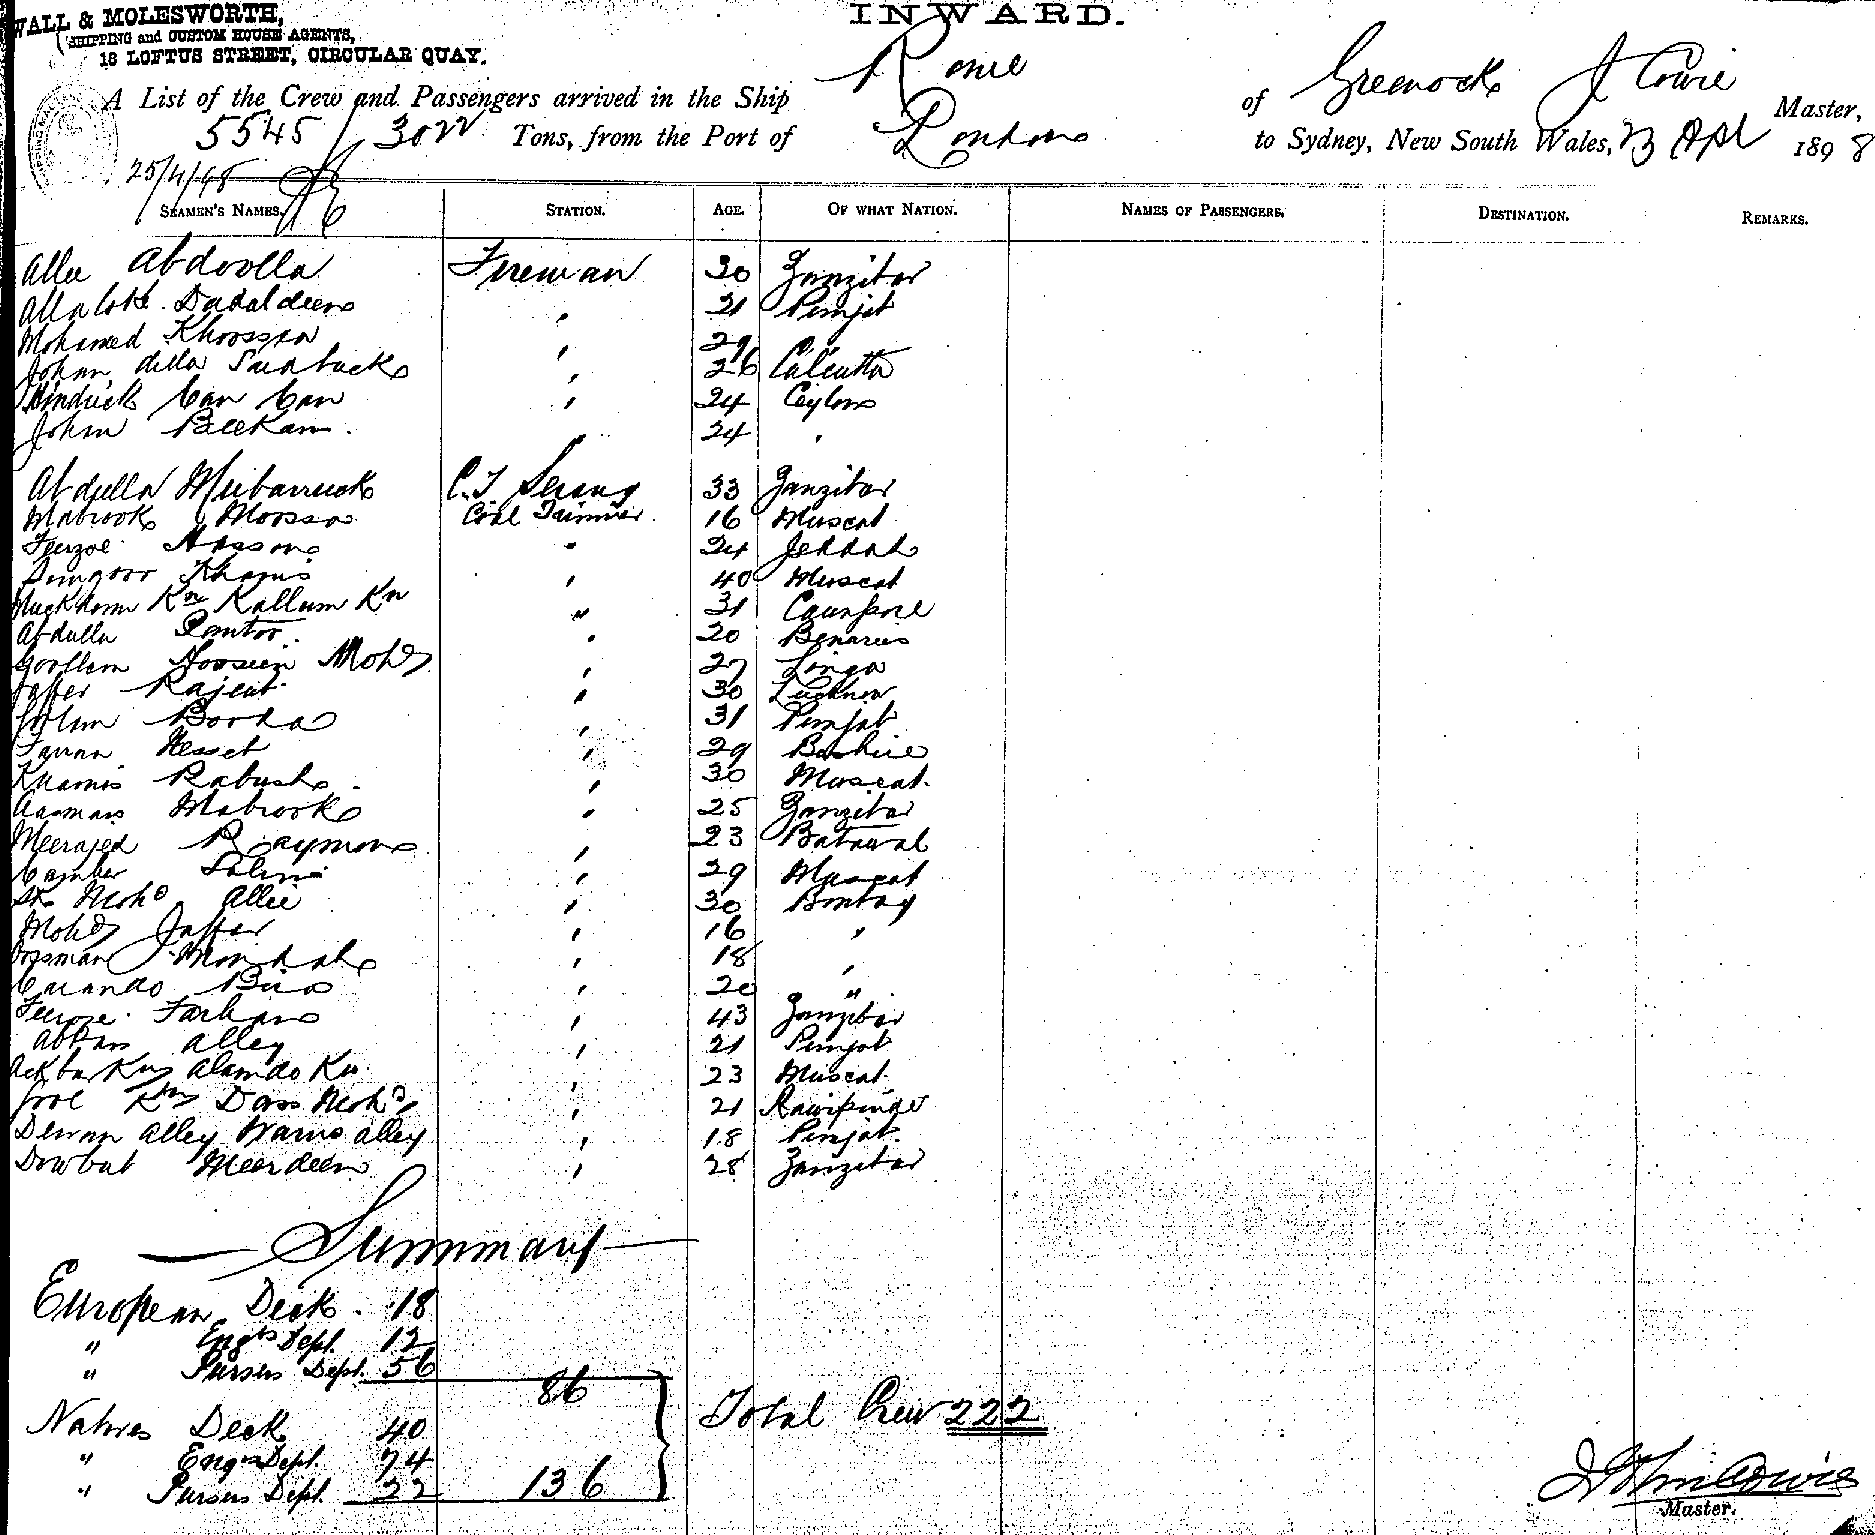 WALL & MOLESWORTH,
SHIPPING and CUSTOM HOUSE AGENTS,
18 LOFTUS STREET, CIRCULAR QUAY.
INWARD.
A List of the Crew and Passengers arrived in the Ship Rome of Greenock J Cowie Master,
5545 / 3022 Tons, from the Port of London to Sydney, New South Wales, 23 Apl 1898
25/4/98
SEAMEN'S NAMES. STATION. AGE. OF WHAT NATION. NAMES OF PASSENGERS. DESTINATION. REMARKS.
Allee Abdoolla Fireman 30 Zanzibar
Dadaldeen " 21 Punjab
Mohamed Khoossen " 29 "
Johan " 26 Calcutta
Hindrick Can Can " 24 Ceylon
Johan Beekam " 24 "
Abdulla Mubarruck C.T. Serang 33 Zanzibar
Mabrook Moossa Coal Trimmer 16 Muscat
Feerzoe Hassan " 24 Jeddah
Khamis " 40 Muscat
Muckdoom Kn Kallum Kn " 31 Caunpore
Abdulla " 20 Benares
Goollam Hoosein Mohd " 27 Linga
Jaffer Rajeab " 30 Lucknow
Goolam Booda " 31 Punjab
Nesset " 29 Bushire
Khamis Rabush " 30 Muscat
Mabrook " 25 Zanzibar
Meerajed " 23
Camber Salim " 29 Muscat
Sk Mohd Allie " 30 Bombay
Mohd Jaffer " 16 "
Oosman " 18 "
" 20 "
Feeroze Farhan " 43 Zanzibar
Abbas Alley " 21 Punjab
Ackbar Kn Alamdo Kn " 23 Muscat
Kn Dass Mohd " 21 Rawipinde
Dewan Alley Waris Alley " 18 Punjab
Dowbut Meerdeen " 28 Zanzibar
Summary
European Deck 18
" Engrs Dept. 12
" Pursers Dept. 56
86
Total Crew 222
Natives Deck 40
" Engrs Dept. 74
" Pursers Dept. 22 136
John Cowie
Master.